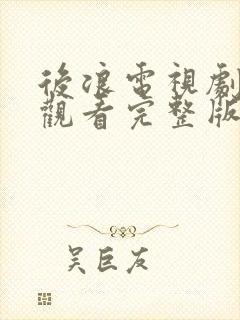 後浪電視劇
觀看完整版
吴巨友